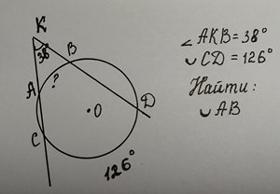 K
38°
B
?
A
O
D
C
126°
∠ AKB = 38°
◡ CD = 126°
Найти:
◡ AB